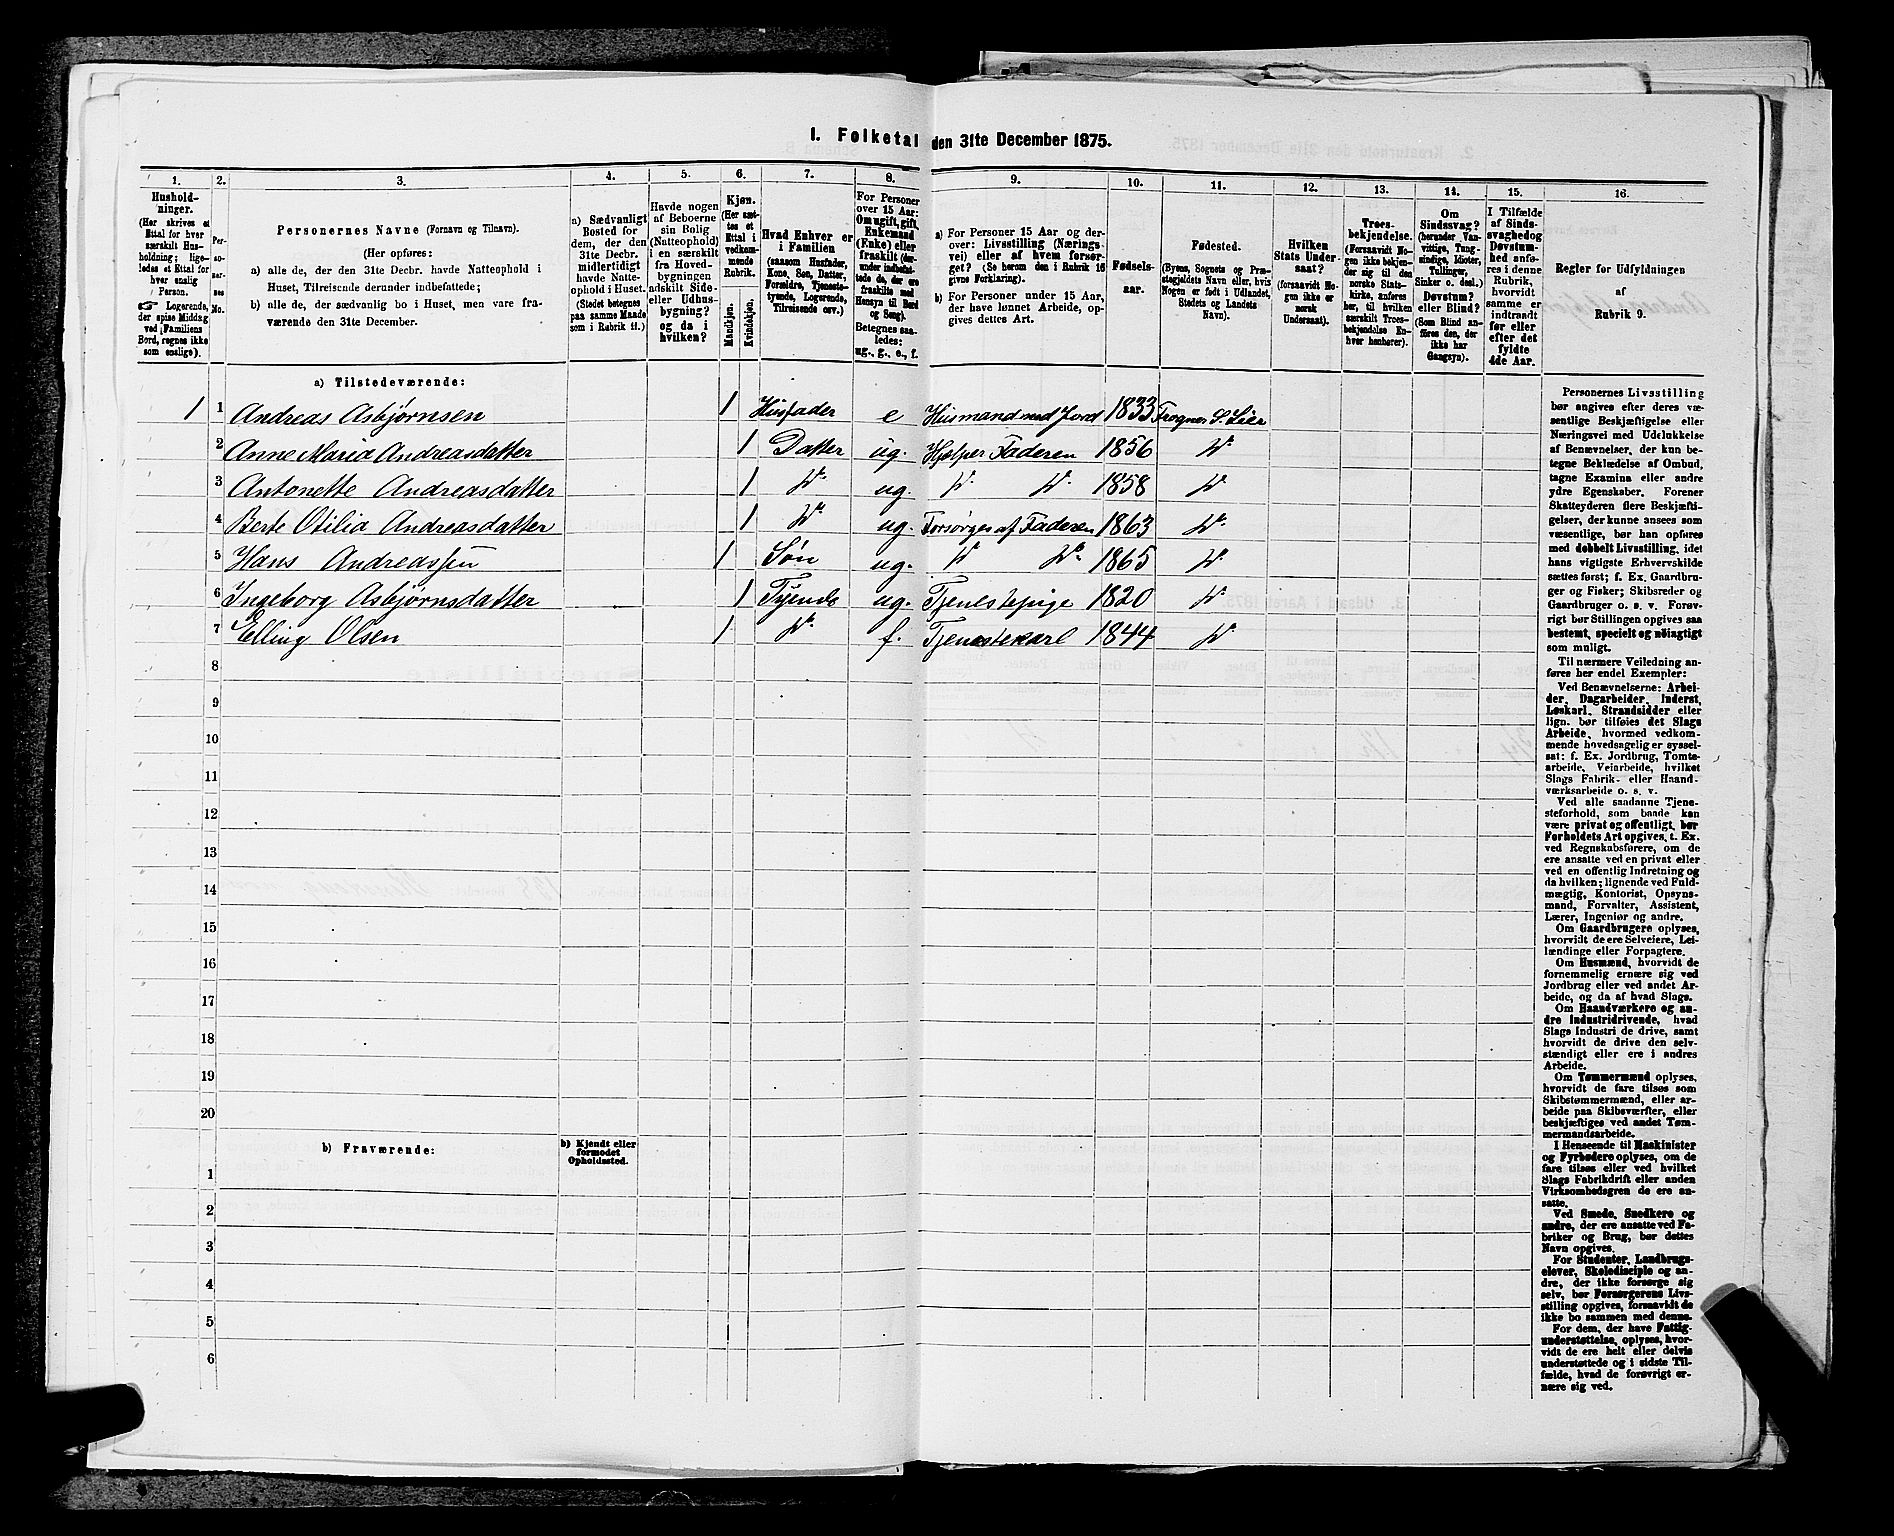 I. Folketal den 31te December 1875.
1. 2. 3. 4. 5. 6. 7. 8. 9. 10. 11. 12. 13. 14. 15. 16.
Hushold-
ninger.
(Her skrives et
Ettal for hver
særskilt Hus-
holdning; lige-
ledes et Ettal for
hver enslig
Person.
☞ Logerende,
der spise Middag
ved Familiens
Bord, regnes ikke
som enslige).
Per-
so-
ner-
nes
No.
Personernes Navne (Fornavn og Tilnavn).
(Her opføres:
a) alle de, der den 31te Decbr. havde Natteophold i
Huset, Tilreisende derunder indbefattede;
b) alle de, der sædvanlig bo i Huset, men vare fra-
værende den 31te December.
a) Sædvanligt
Bosted for
dem, der den
31te Decbr.
midlertidigt
havde Natte-
ophold i Huset.
(Stedet betegnes
paa samme Maade
som i Rubrik 11.)
Havde nogen
af Beboerne
sin Bolig
(Natteophold)
i en særskilt
fra Hoved-
bygningen
adskilt Side-
eller Udhus-
bygning?
og da i
hvilken?
Kjøn.
(Her sæt-
tes et
Ettal i
vedkom-
mende
Rubrik.
Mandkjøn.
Kvindekjøn.
Hvad Enhver er
i Familien
(saasom Husfader,
Kone, Søn, Datter,
Forældre, Tjeneste-
tyende, Logerende,
Tilreisende osv.)
For Personer
over 15 Aar:
Om ugift, gift,
Enkemand
(Enke) eller
fraskilt (der-
under indbefat-
tede de, der ere
fraskilte med
Hensyn til Bord
og Seng).
Betegnes saa-
ledes:
ug., g., e., f.
a) For Personer 15 Aar og der-
over: Livsstilling (Nærings-
vei) eller af hvem forsør-
get? (Se herom den i Rubrik 16
givne Forklaring).
b) For Personer under 15 Aar,
der have lønnet Arbeide, op-
gives dettes Art.
Fødsels-
aar.
Fødested.
(Byens, Sognets og Præ-
stegjeldets Navn eller, hvis
Nogen er født i Udlandet,
Stedets og Landets
Navn).
Hvilken
Stats Under-
saat?
(forsaavidt No-
gen ikke er
norsk
Undersaat).
Troes-
bekjendelse.
(Forsaavidt No-
gen ikke bekjen-
der sig til den
norske Stats-
kirke, anføres
her, til hvilken
særskilt Troes-
bekjendelse En-
hver henhører).
Om
Sindssvag?
(herunder Van-
vittige, Tung-
sindige, Idioter,
Tullinger,
Sinker o. desl.)
Døvstum?
eller Blind?
(Som Blind an-
føres den, der
ikke har
Gangsyn).
I Tilfælde
af Sinds-
svaghed og
Døvstum-
hed anfø-
res i denne
Rubrik,
hvorvidt
samme er
indtraadt
før eller
efter det
fyldte
4de Aar.
Regler for Udfyldningen
af
Rubrik 9.
a) Tilstedeværende:
1 1 Andreas Asbjørnsen 1 Husfader e Husmand med Jord 1833 Frogner S. Lier
2 Anne Maria Andreasdatter 1 Datter ug. Hjelper Faderen 1856 Do
3 Antonette Andreasdatter 1 Do ug. Do Do 1858 Do
4 Berte Otilia Andreasdatter 1 Do ug. Forsørges af Faderen 1863 Do
5 Hans Andreassen 1 Søn ug. Do Do 1865 Do
6 Ingeborg Asbjørnsdatter 1 Tyende ug. Tjenestepige 1820 Do
7 Elling Olsen 1 Do f. Tjenestekarl 1844 Do
8
9
10
11
12
13
14
15
16
17
18
19
20
b) Fraværende:
b) Kjendt eller
formodet
Opholdssted.
1
2
3
4
5
6
Personernes Livsstilling
bør angives efter deres væ-
sentlige Beskjæftigelse eller
Næringsvei med Udelukkelse
af Benævnelser, der kun be-
tegne Beklædelse af Ombud,
tagne Examina eller andre
ydre Egenskaber. Forener
Skatteyderen flere Beskjæfti-
gelser, der kunne ansees som
væsentlige, bør han opføres
med dobbelt Livsstilling, idet
hans vigtigste Erhvervskilde
sættes først; f. Ex. Gaardbru-
ger og Fisker; Skibsreder og
Gaardbruger o. s. v. Forøv-
rigt bør Stillingen opgives saa
bestemt, specielt og nøiagtigt
som muligt.
Til nærmere Veiledning an-
føres her endel Exempler:
Ved Benævnelserne: Arbei-
der, Dagarbeider, Inderst,
Løskarl, Strandsidder eller
lign. bør tilføies det Slags
Arbeide, hvormed vedkom-
mende hovedsagelig er syssel-
sat: f. Ex. Jordbrug, Tomte-
arbeide, Veiarbeide, hvilket
Slags Fabrik- eller Haand-
værksarbeide o. s. v.
Ved alle saadanne Tjene-
steforhold, som baade kan
være privat og offentligt, bør
Forholdets Art opgives, t. Ex.
ved Regnskabsførere, om de
ere ansatte ved en privat eller
ved en offentlig Indretning og
da hvilken; lignende ved Fuld-
mægtig, Kontorist, Opsyns-
mand, Forvalter, Assistent,
Lærer, Ingeniør og andre.
Om Gaardbrugere oplyses,
hvorvidt de ere Selveiere, Lei-
lændinge eller Forpagtere.
Om Husmænd, hvorvidt de
fornemmelig ernære sig ved
Jordbrug eller ved andet Ar-
beide, og da af hvad Slags.
Om Haandværkere og an-
dre Industridrivende, hvad
Slags Industri de drive, samt
hvorvidt de drive den selv-
stændigt eller ere i andres
Arbeide.
Om Tømmermænd oplyses,
hvorvidt de fare tilsøs som
Skibstømmermænd, eller ar-
beide paa Skibsværfter, eller
beskjæftiges ved andet Tøm-
mermandsarbeide.
I Henseende til Maskinister
og Fyrbødere oplyses, om de
fare tilsøs eller ved hvilket
Slags Fabrikdrift eller anden
Virksombedsgren de ere an-
satte.
Ved Smede, Snedkere og
andre, der ere ansatte ved Fa-
briker og Brug, bør dettes
Navn opgives.
For Studenter, Landbrugs-
elever, Skoledisciple og an-
dre, der ikke forsørge sig
selv, bør Forsørgerens Livs-
stilling opgives, forsaavidt de
ikke bo sammen med denne.
For dem, der have Fattig-
understøttelse, oplyses, hvor-
vidt de ere helt eller delvis
understøttede og i sidste Til-
fælde, hvad de forøvrigt er-
nære sig ved.